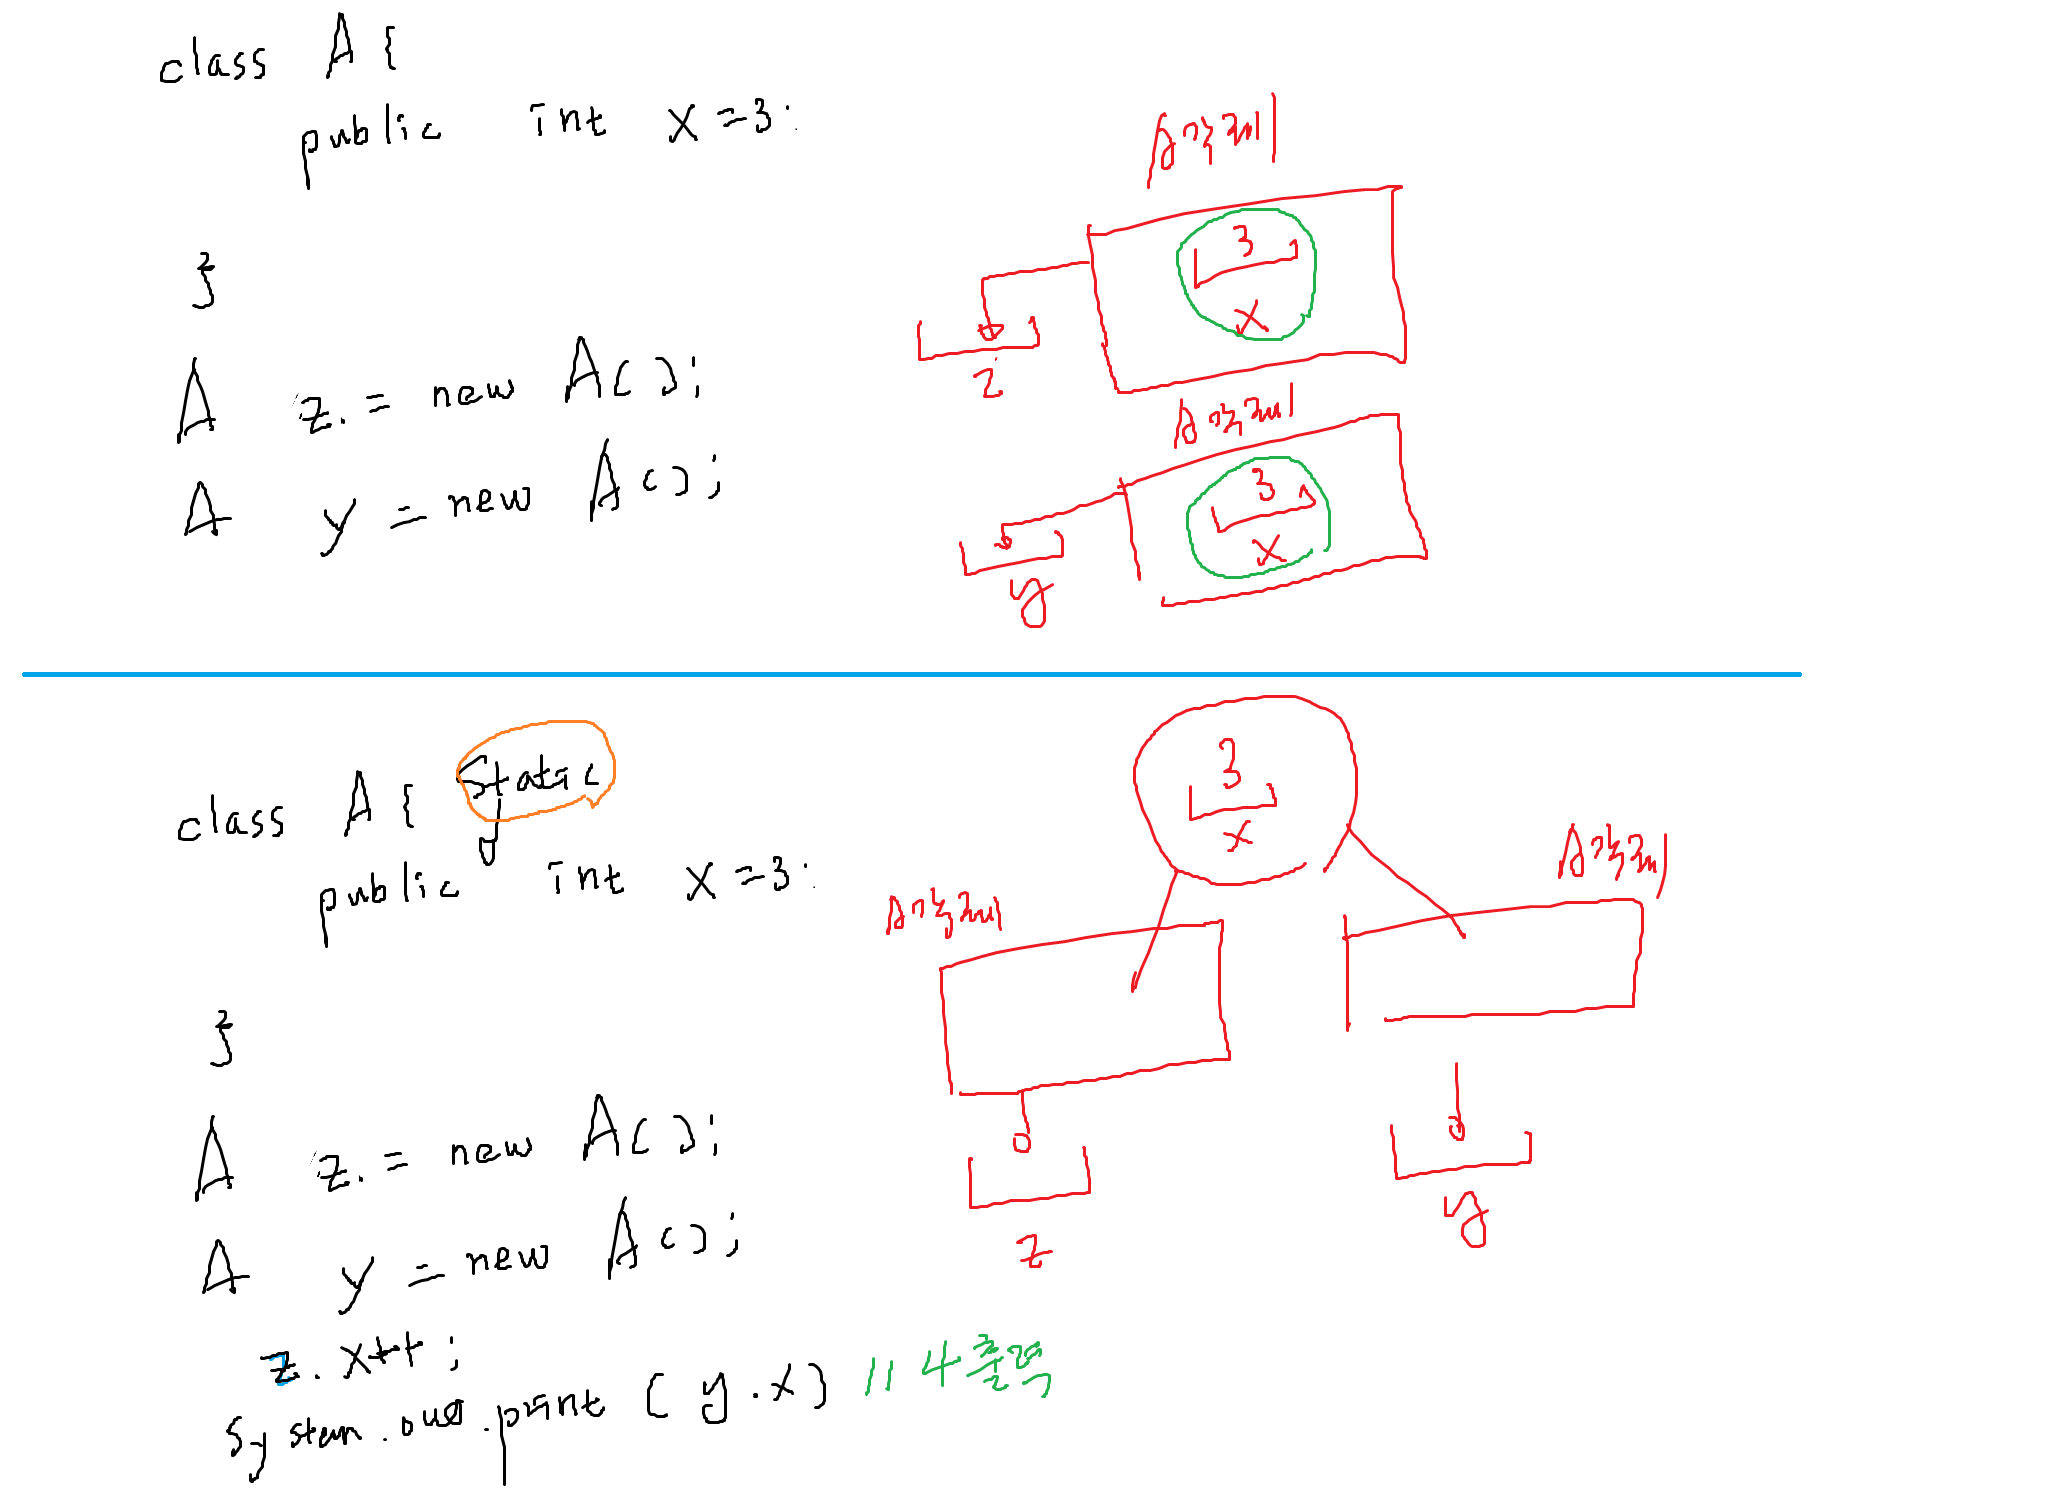 class A {
public int x = 3;
}
A z. = new A();
A y = new A();
A객체
3
x
z
A객체
3
x
y
class A { static
public int x = 3;
}
A z. = new A();
A y = new A();
z. x++;
System.out.print ( y.x ) // 4 출력
3
x
A객체
z
A객체
y